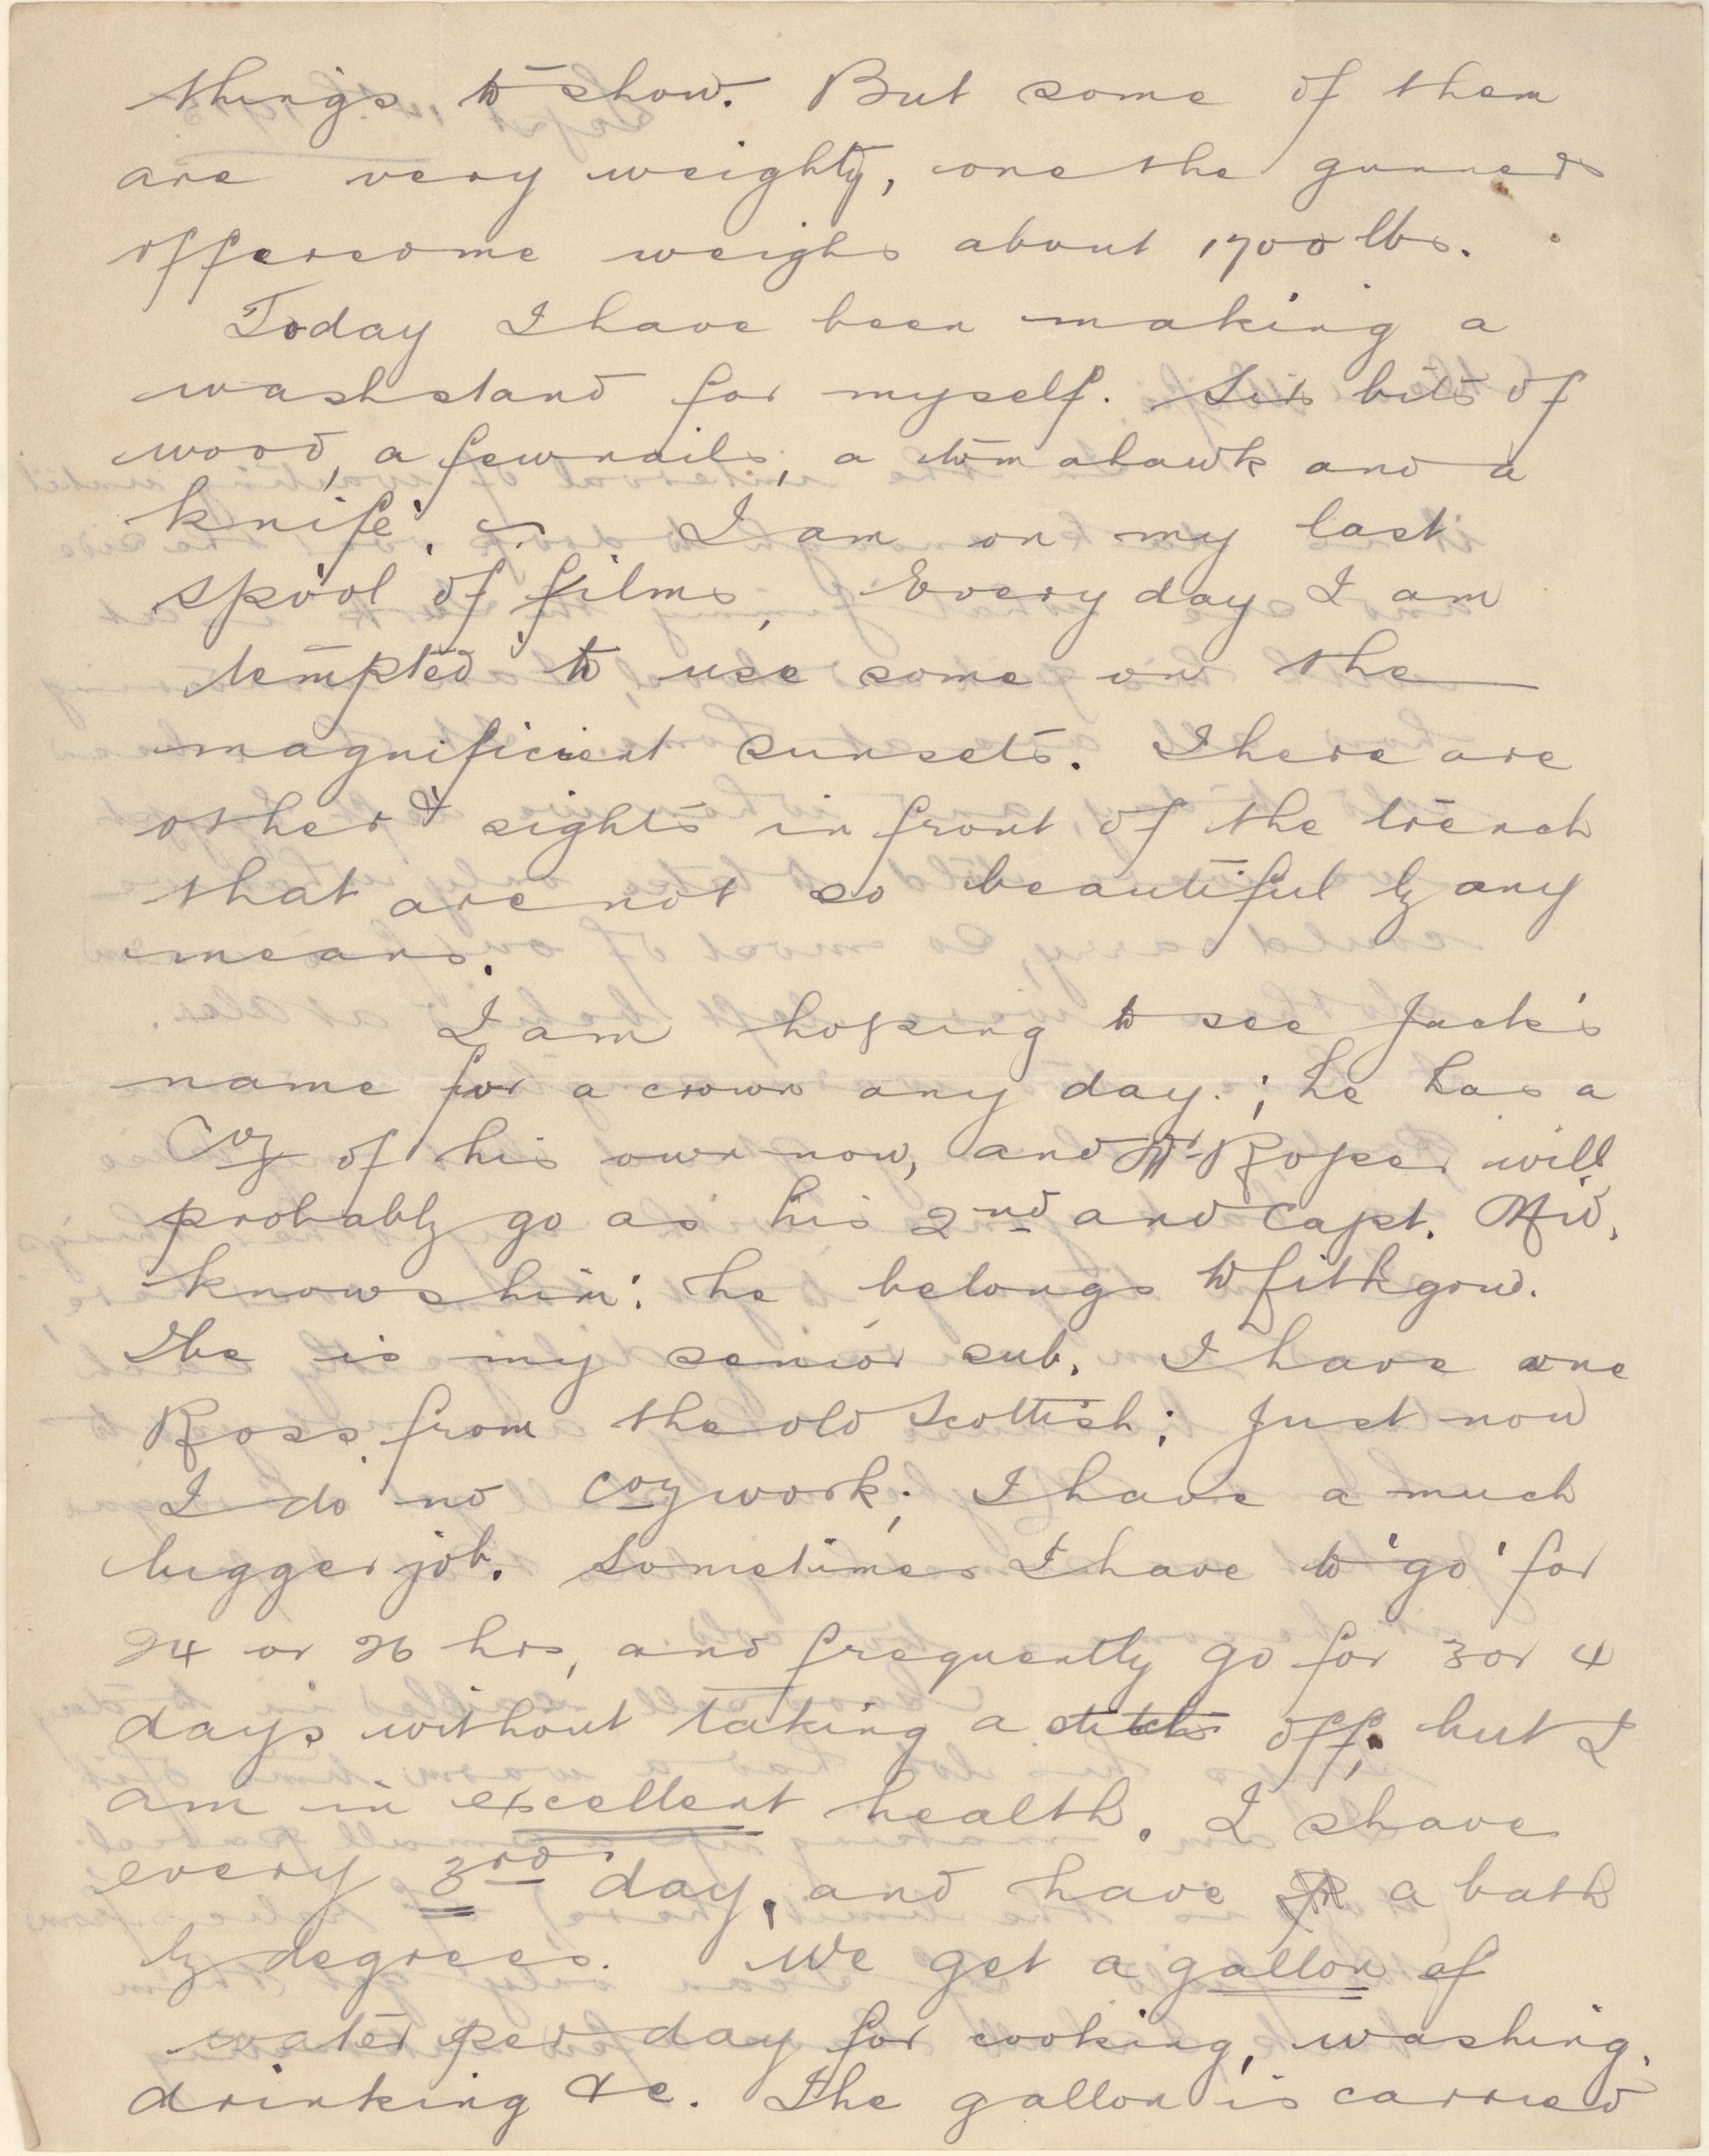 things to show. But some of them
are very weighty, one the gunners
offered me weighs about 1700 lbs.
Today I have been making a
washstand for myself. Six bits of
wood, a few nails, a tomahawk and a
knife. I am on my last
spool of films, Every day I am
tempted to use some on the
magnificient sunsets. There are
other sights in front of the trench
that are not so beautiful by any
means.
I am hoping to see Jack's
name for a crown any day.; he has a
Coy of his own now, and Roper will
probably go as his 2nd and Capt.
knows him: he belongs to Lithgow.
He is my senior sub. I have one
Ross from the old Scottish; Just now
I do no Coy work; I have a much
bigger job. Sometimes I have to 'go' for
24 or 26 hrs, and frequently go for 3 or 4
days without taking a stitch off; but I
am in excellent health. I shave
every 3rd day, and have a bath
by degrees. We get a gallon of
water per day for cooking, washing,
drinking &c. The gallon is carried